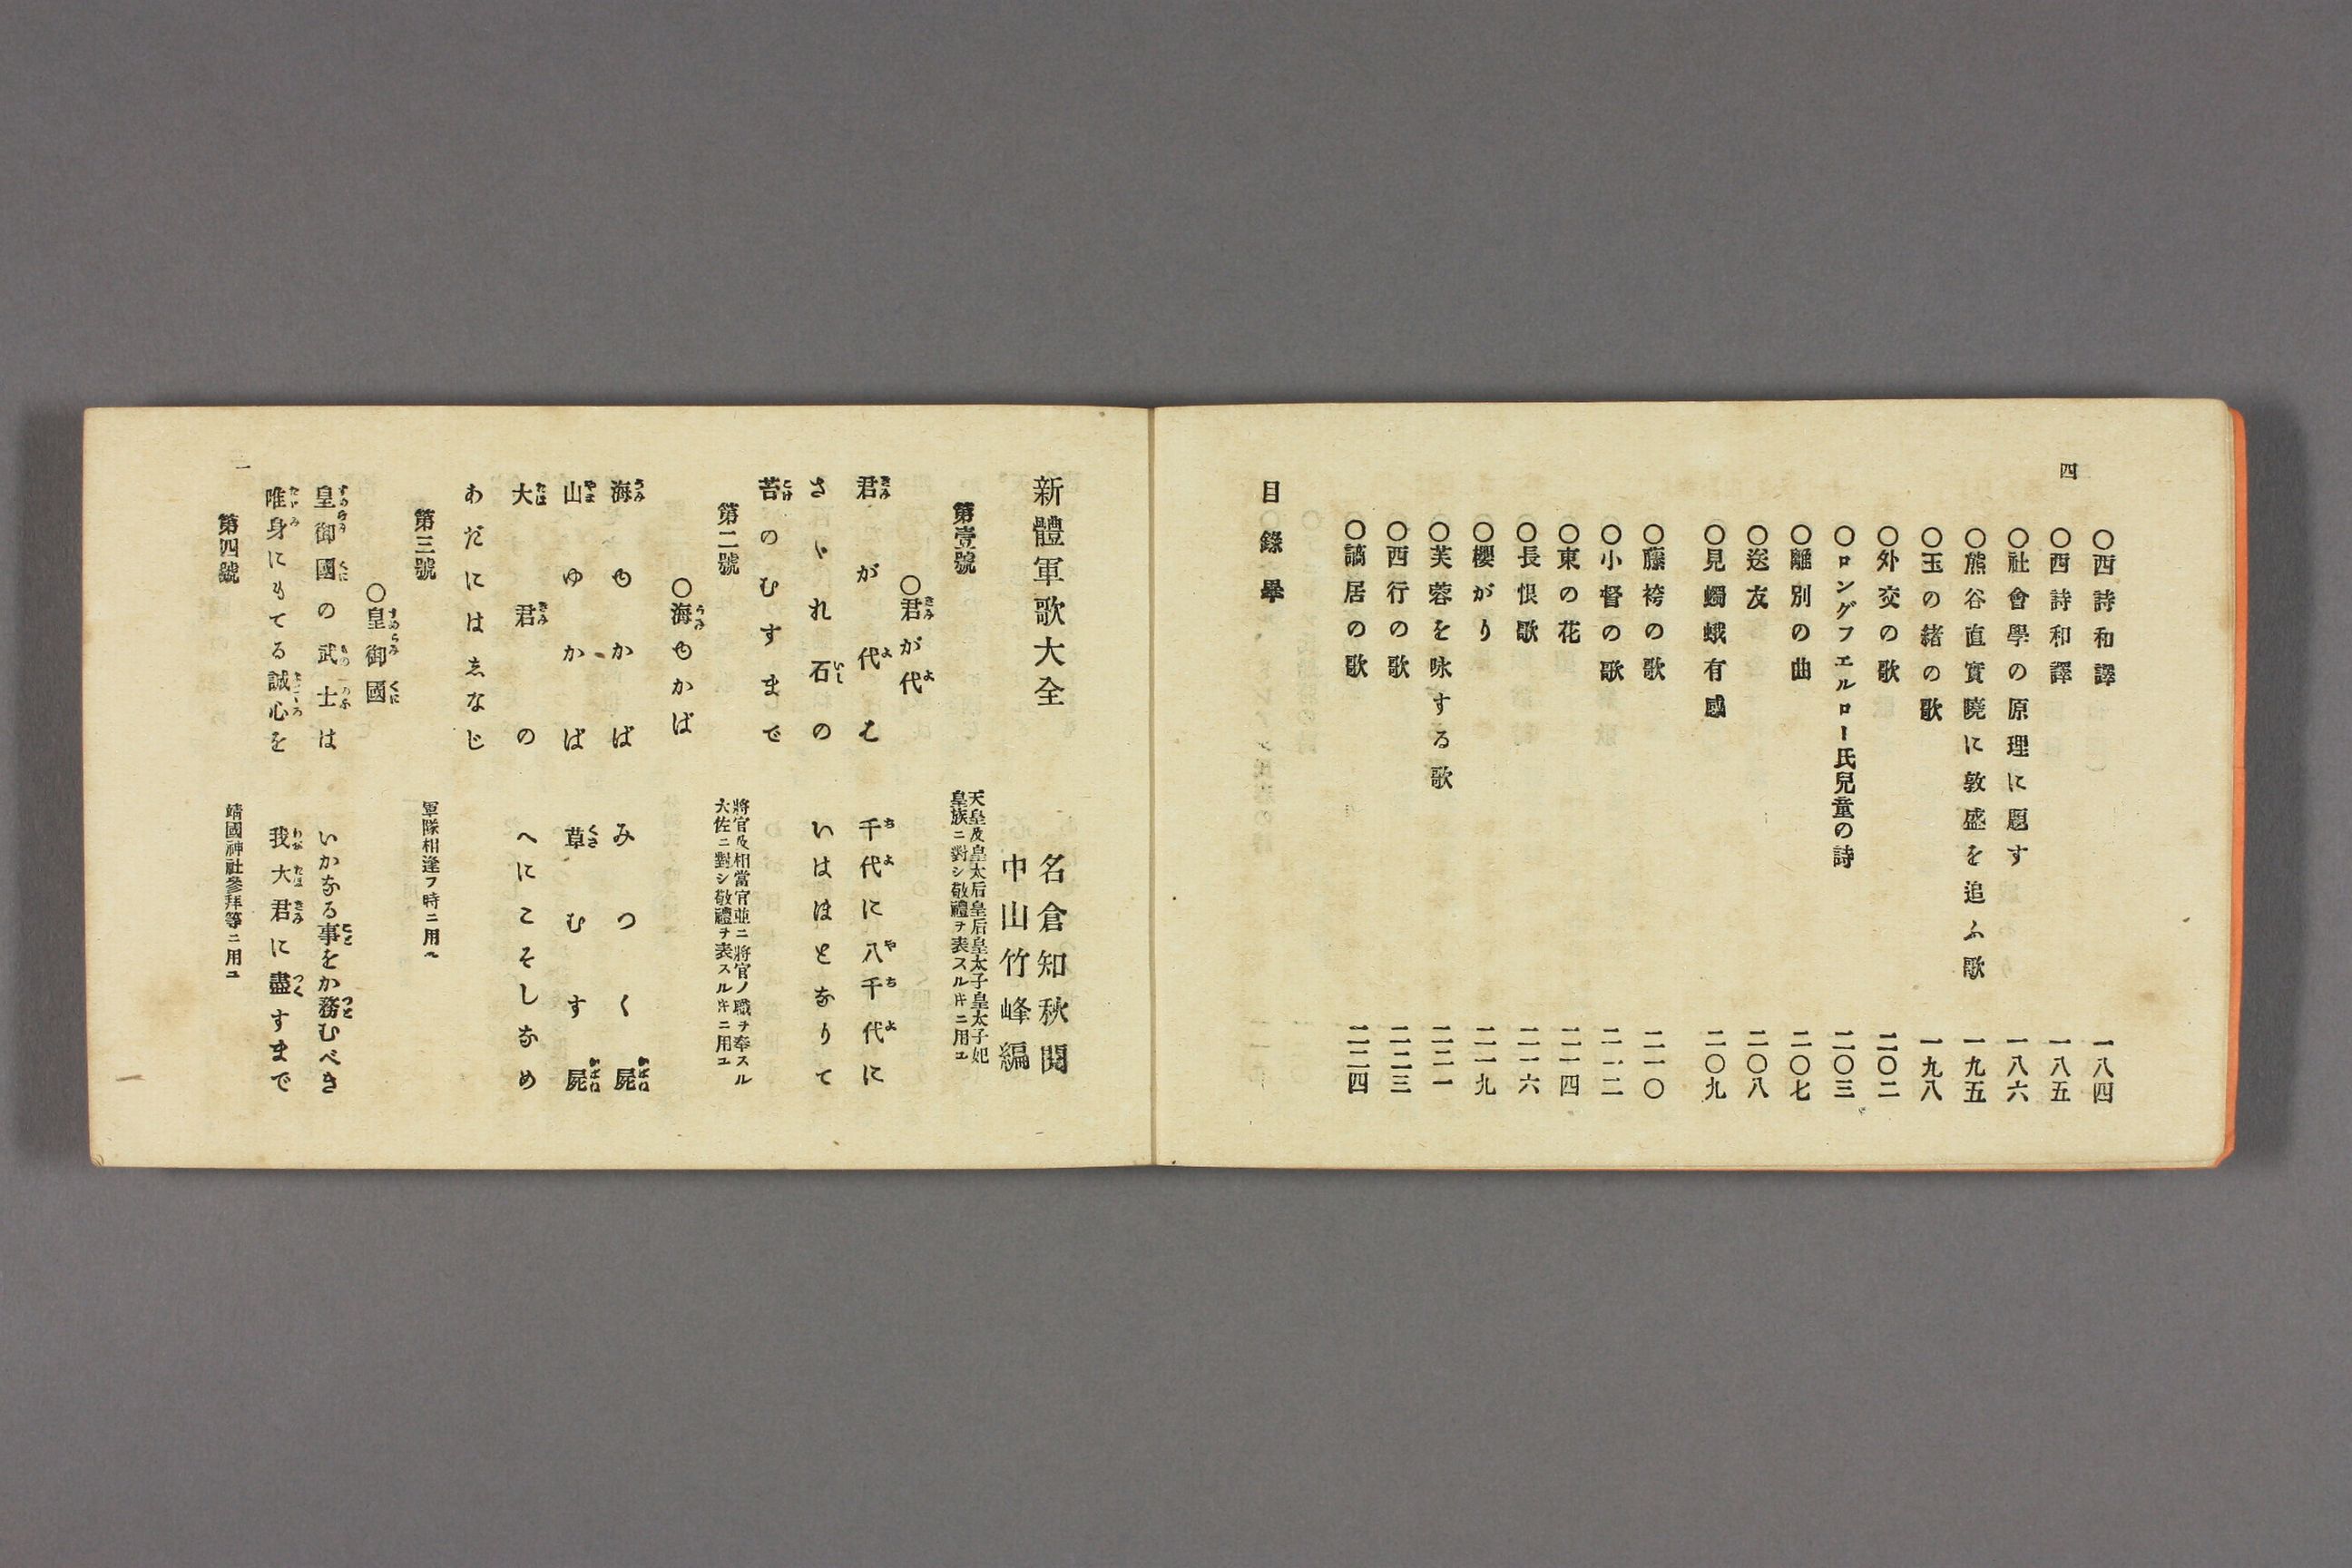 四
〇西詩和譯 一八四
〇西詩和譯 一八五
〇社會學の原理に題す 一八六
〇熊谷直實曉に敦盛を追ふ歌 一九五
〇玉の緒の歌 一九八
〇外交の歌 二〇二
〇ロングフエルロー氏兒童の詩 二〇三
〇離別の曲 二〇七
〇送友 二〇八
〇見蠋蛾有感 二〇九
〇藤袴の歌 二一〇
〇小督の歌 二一二
〇東の花 二一四
〇長恨歌 二一六
〇櫻がり 二一九
〇芙蓉を咏する歌 二二一
〇西行の歌 二二三
〇謫居の歌 二二四
目錄畢
新體軍歌大全
名倉知秋閱
中山竹峰編
第壹號
天皇及皇太后皇后皇太子皇太子妃
皇族ニ對シ敬禮ヲ表スル𪜈ニ用ユ
〇君が代
君が代は 千代に八千代に
さゝれ石の いはほとなりて
苔のむすまで
第二號
將官及相當官並ニ將官ノ職ヲ奉スル
大佐ニ對シ敬禮ヲ表スル𪜈ニ用ユ
〇海ゆかば
海ゆかば みつく屍
山ゆかば 草むす屍
大君の へにこそしなめ
あだにはゑなじ
第三號
軍隊相逢フ時ニ用ユ
〇皇御國
皇御國の武士は いかなる事をか務むべき
唯身にもてる誠心を 我大君に盡すまで
第四號
靖國神社參拜等ニ用ユ
一